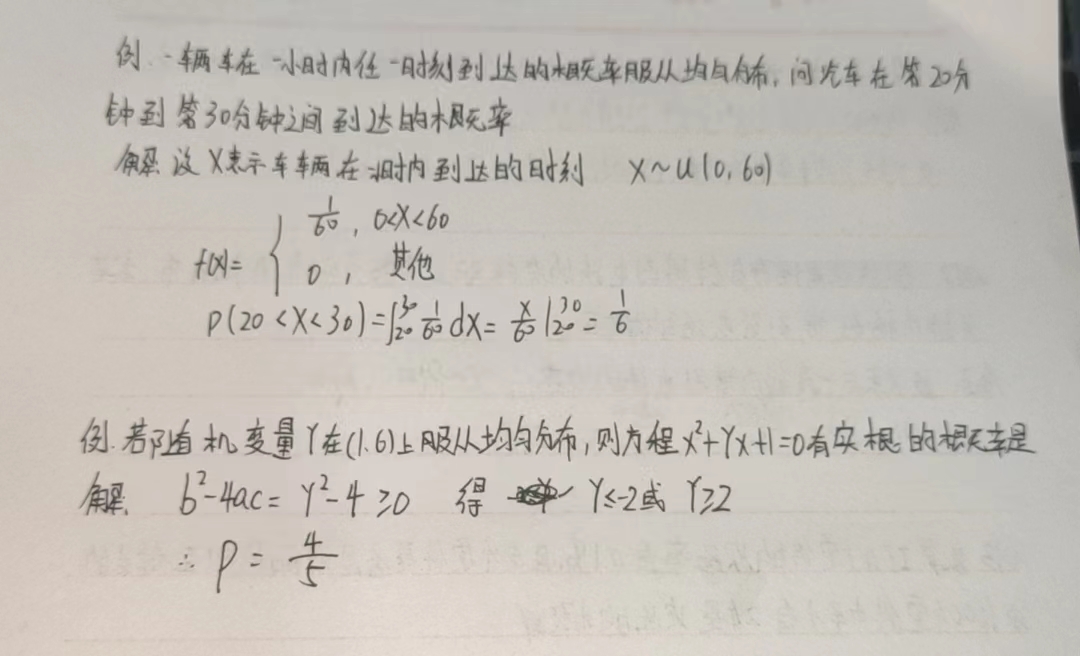 例.一辆车在一小时内任一时刻到达的概率服从均匀分布,问汽车在第20分
钟到第30分钟之间到达的概率
解 设X表示车辆在一小时内到达的时刻 X~U(0,60)
f(x)= { 1/60, 0<X<60
0, 其他
P(20<X<30)=∫₂₀³⁰ 1/60 dx= x/60 |₂₀³⁰ = 1/6
例.若随机变量Y在(1.6)上服从均匀分布,则方程x²+Yx+1=0有实根的概率是
解 b²-4ac=Y²-4≥0 得 Y≤-2或Y≥2
∴P=4/5